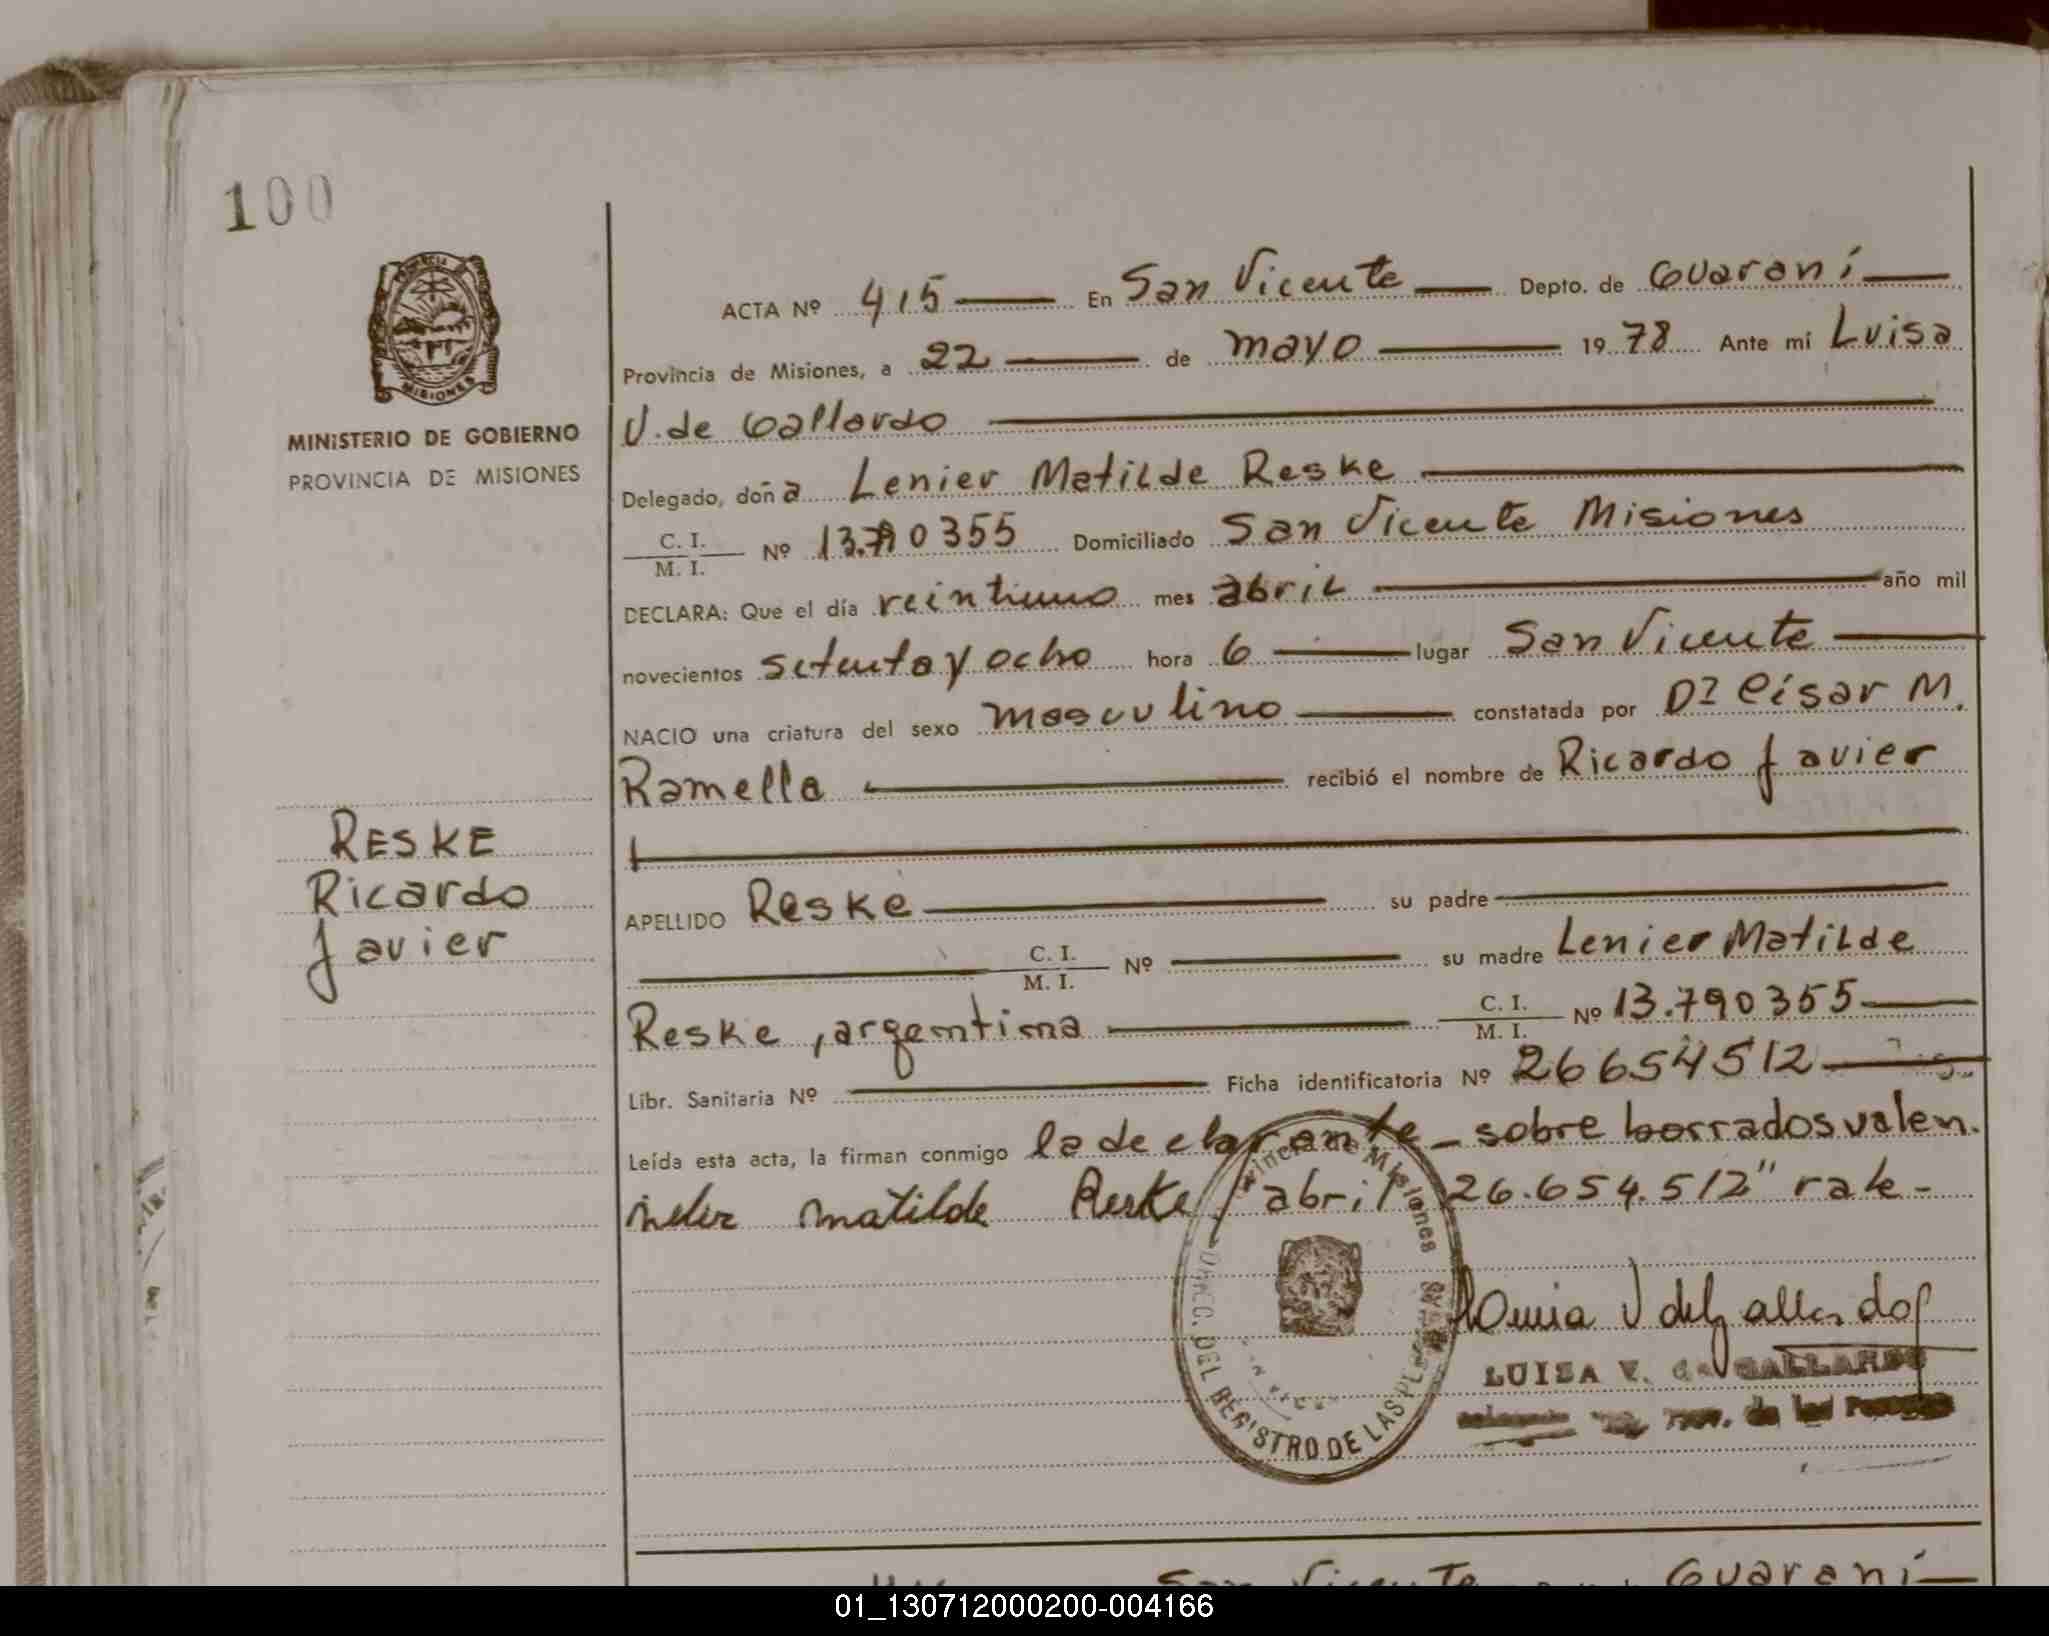 100
MISIONES
MINISTERIO DE GOBIERNO
PROVINCIA DE MISIONES
RESKE
Ricardo
Javier
ACTA Nº 415 En San Vicente Depto. de Guaraní
Provincia de Misiones, a 22 de mayo 1978 Ante mí Luisa
V. de Gallardo
Delegado, doña Lenier Matilde Reske
C. I.
M. I. Nº 13.790355 Domiciliado San Vicente Misiones
DECLARA: Que el día veintiuno mes abril año mil
novecientos setenta y ocho hora 6 lugar San Vicente
NACIO una criatura del sexo masculino constatada por Dr César M.
Ramella recibió el nombre de Ricardo Javier
APELLIDO Reske su padre
C. I.
M. I. Nº su madre Lenier Matilde
Reske, argentina C. I.
M. I. Nº 13.790355
Libr. Sanitaria Nº Ficha identificatoria Nº 26654512
Leída esta acta, la firman conmigo la declarante - sobre borrados valen.
matilde Reske abril 26.654.512" vale -
Provincia de Misiones
DEL REGISTRO DE LAS
LUISA V. de GALLARDO
de las Personas
San Vicente Guaraní
01_130712000200-004166